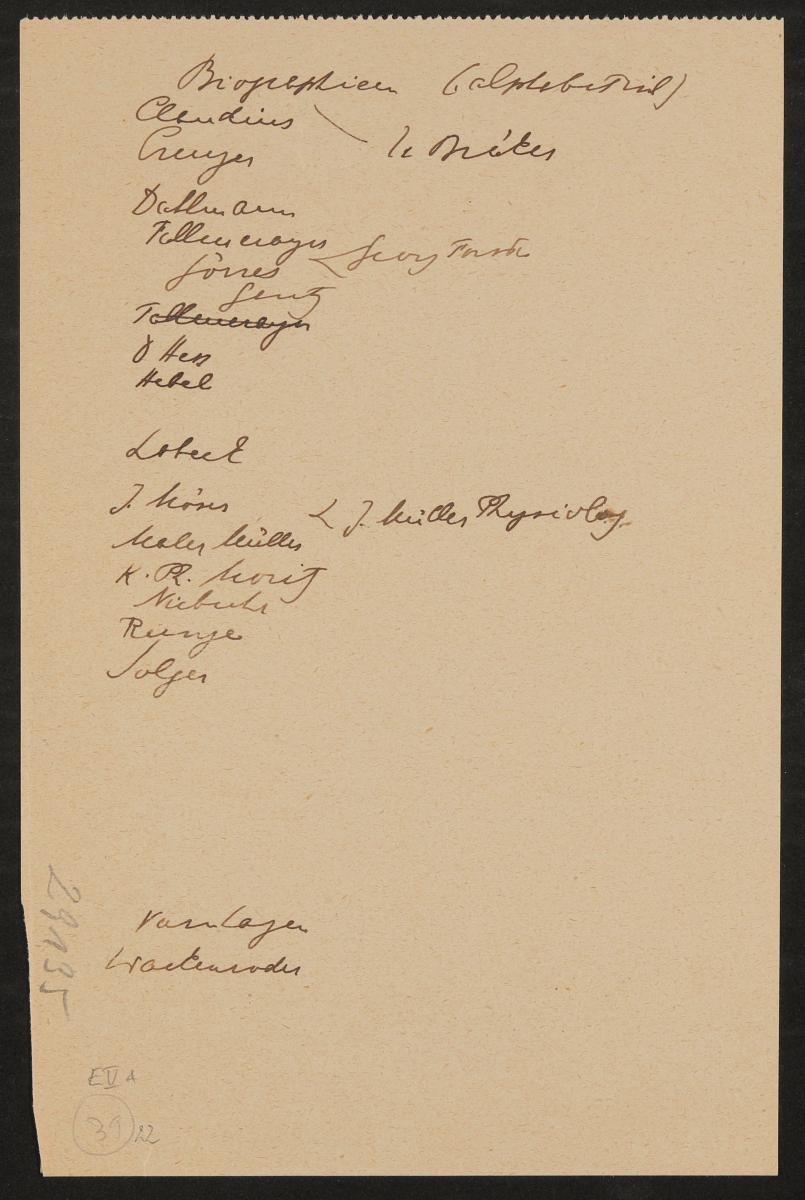 Biographien (alphabetisch)
Claudius
Creuzer
U. Bräker
Dahlmann
Fallmerayer
Georg Forster
Görres
Gentz
Fallmerayer
Hess
Hebel
Lobeck
J. Möser
J. Müller Physiolog
Maler Müller
K. Ph. Moritz
Niebuhr
Runge
Solger
Varnhagen
Wackenroder
29195
EIV A
31 22